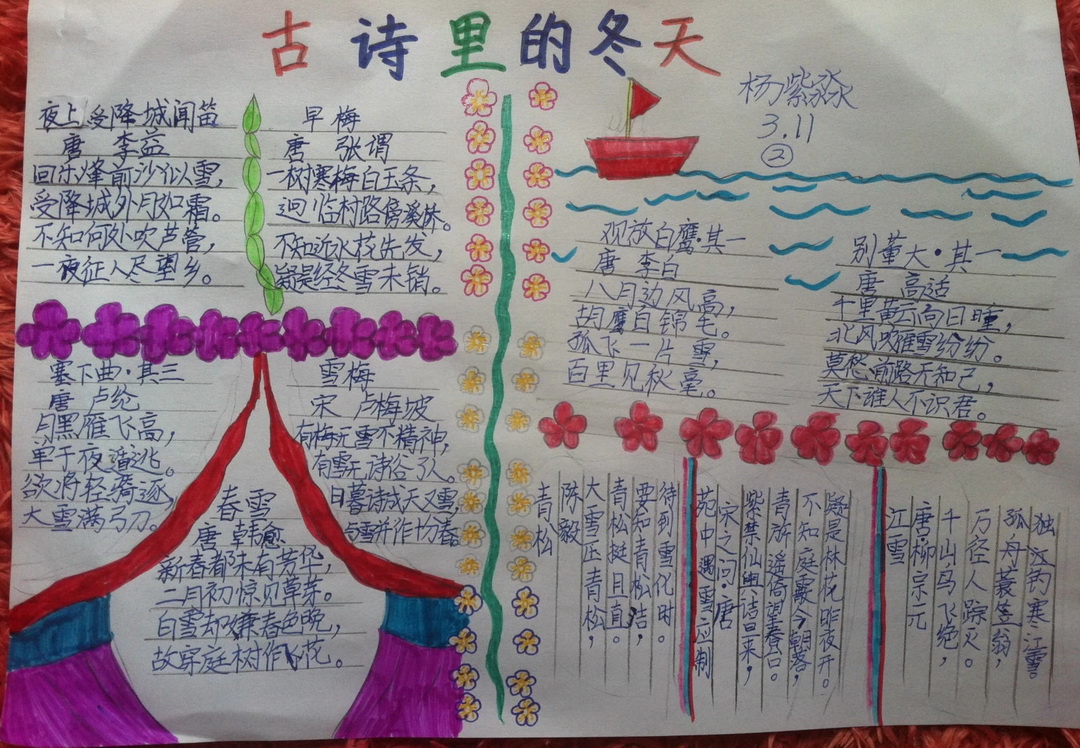 古诗里的冬天
杨紫淼
3.11
②
夜上受降城闻笛
唐 李益
回乐烽前沙似雪，
受降城外月如霜。
不知何处吹芦管，
一夜征人尽望乡。
早梅
唐 张谓
一树寒梅白玉条，
迥临村路傍溪桥。
不知近水花先发，
疑是经冬雪未销。
塞下曲·其三
唐 卢纶
月黑雁飞高，
单于夜遁逃。
欲将轻骑逐，
大雪满弓刀。
雪梅
宋 卢梅坡
有梅无雪不精神，
有雪无诗俗了人。
日暮诗成天又雪，
与雪并作十分春。
春雪
唐 韩愈
新春都未有芳华，
二月初惊见草芽。
白雪却嫌春色晚，
故穿庭树作飞花。
观放白鹰·其一
唐 李白
八月边风高，
胡鹰白锦毛。
孤飞一片雪，
百里见秋毫。
别董大·其一
唐 高适
千里黄云向日曛，
北风吹雁雪纷纷。
莫愁前路无知己，
天下谁人不识君。
青松
陈毅
大雪压青松，
青松挺且直。
要知青松洁，
待到雪化时。
苑中遇雪应制
宋之问·唐
紫禁仙舆诘旦来，
青旂遥倚望春台。
不知庭霰今朝落，
疑是林花昨夜开。
江雪
唐柳宗元
千山鸟飞绝，
万径人踪灭。
孤舟蓑笠翁，
独江钓寒江雪。